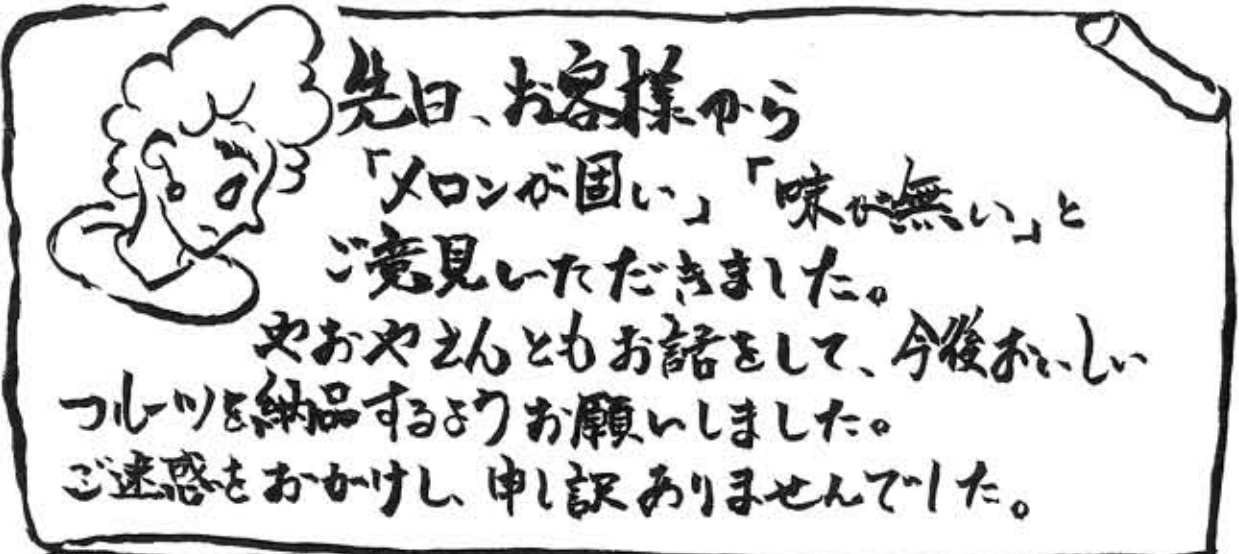 先日、お客様から
「メロンが固い」「味が無い」と
ご意見いただきました。
やおやさんともお話をして、今後おいしい
フルーツを納品するようお願いしました。
ご迷惑をおかけし、申し訳ありませんでした。